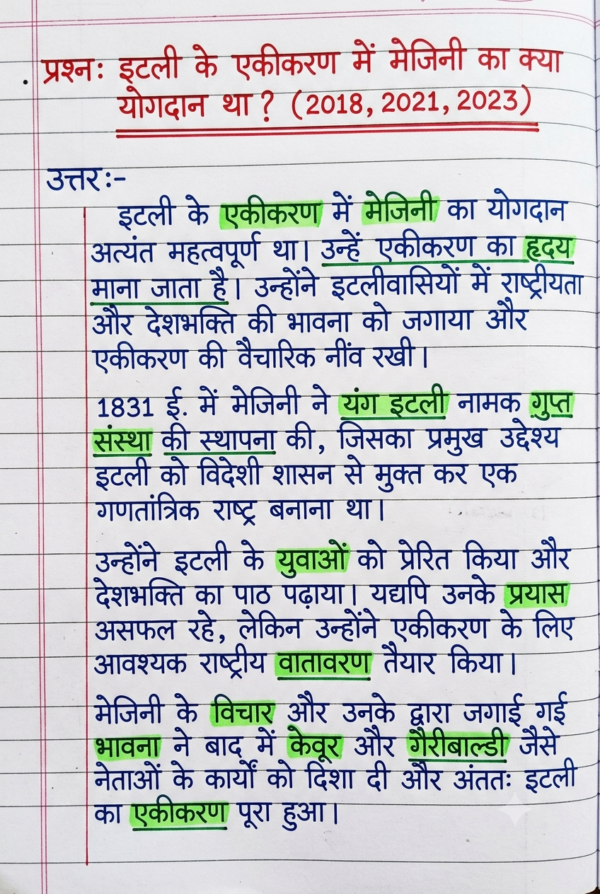 प्रश्नः इटली के एकीकरण में मेजिनी का क्या
योगदान था? (2018, 2021, 2023)
उत्तरः-
इटली के एकीकरण में मेजिनी का योगदान
अत्यंत महत्वपूर्ण था। उन्हें एकीकरण का हृदय
माना जाता है। उन्होंने इटलीवासियों में राष्ट्रीयता
और देशभक्ति की भावना को जगाया और
एकीकरण की वैचारिक नींव रखी।
1831 ई. में मेजिनी ने यंग इटली नामक गुप्त
संस्था की स्थापना की, जिसका प्रमुख उद्देश्य
इटली को विदेशी शासन से मुक्त कर एक
गणतांत्रिक राष्ट्र बनाना था।
उन्होंने इटली के युवाओं को प्रेरित किया और
देशभक्ति का पाठ पढ़ाया। यद्यपि उनके प्रयास
असफल रहे, लेकिन उन्होंने एकीकरण के लिए
आवश्यक राष्ट्रीय वातावरण तैयार किया।
मेजिनी के विचार और उनके द्वारा जगाई गई
भावना ने बाद में केवूर और गैरीबाल्डी जैसे
नेताओं के कार्यों को दिशा दी और अंततः इटली
का एकीकरण पूरा हुआ।